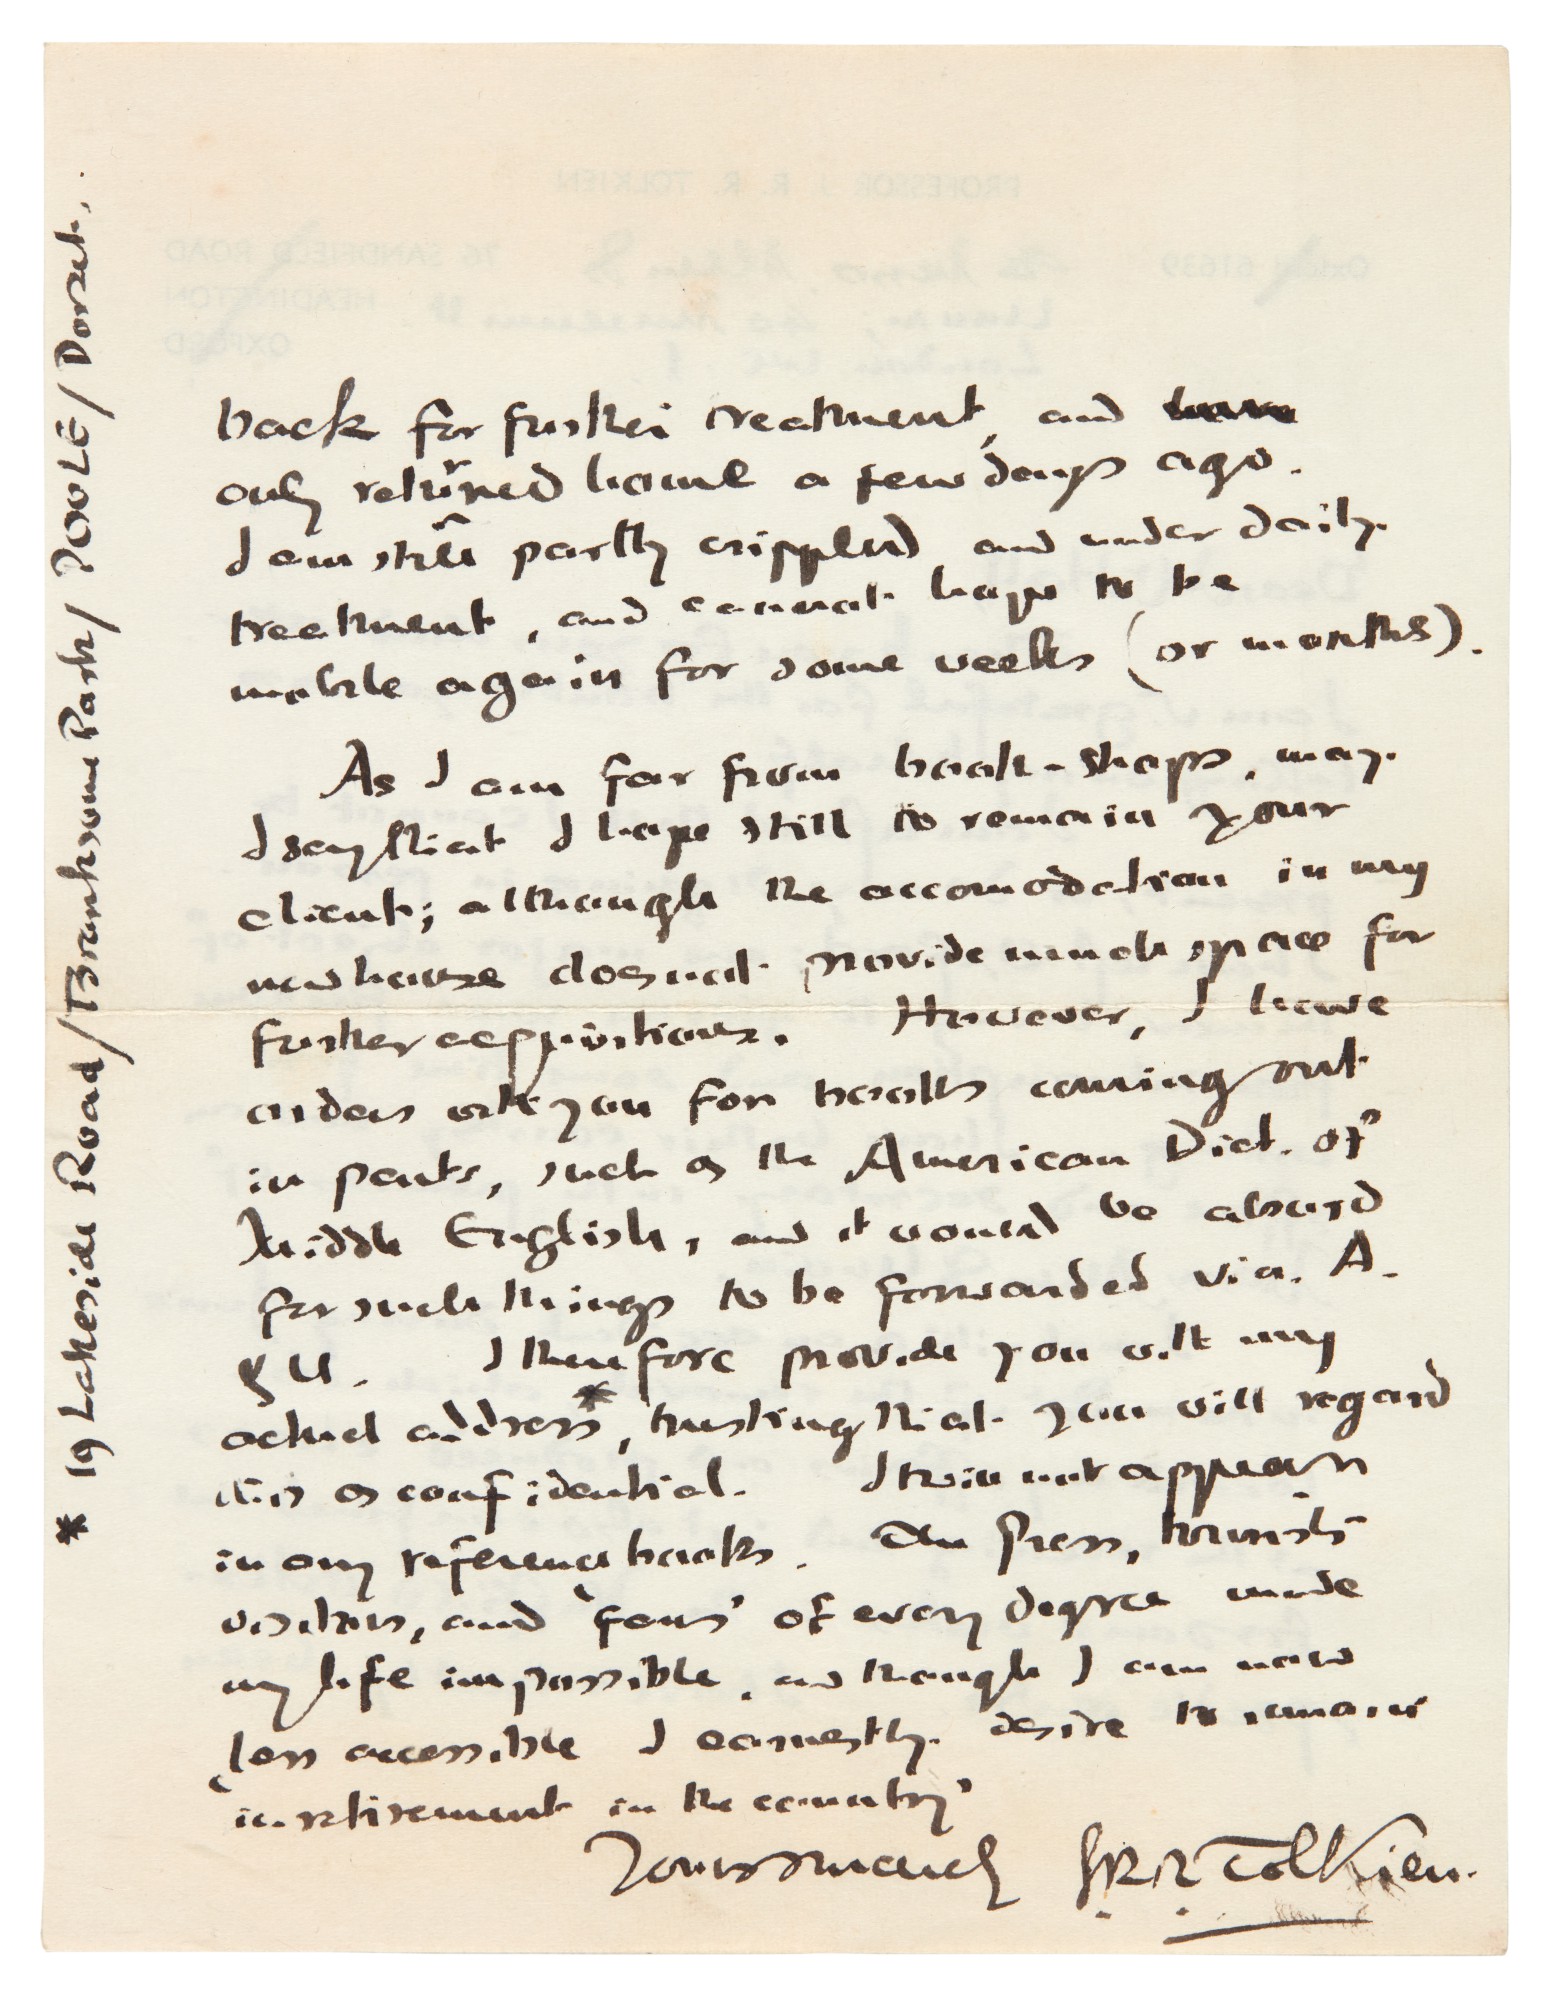 back for further treatment, and
only returned home a few days ago.
I am still partly crippled and under daily
treatment, and cannot hope to be
mobile again for some weeks (or months).
As I am far from book-shops, may
I say that I hope still to remain your
client; although the accomodation in my
new house does not provide much space for
further acquisitions. However, I have
orders with you for books coming out
in parts, such as the American Dict. of
Middle English, and it would be absurd
for such things to be forwarded via. A.
& U. I therefore provide you with my
actual address*, trusting that you will regard
this as confidential. I will not appear
in any reference books. The Press, tourists
visitors, and 'fans' of every degree made
my life impossible, and though I am now
less accessible I earnestly desire to remain
'in retirement in the country'
Yours sincerely J.R.R. Tolkien.
* 19 Lakeside Road/Branksome Park/POOLE/Dorset.
PROFESSOR J. R. R. TOLKIEN
76 SANDFIELD ROAD
HEADINGTON
OXFORD
Oxford 61639